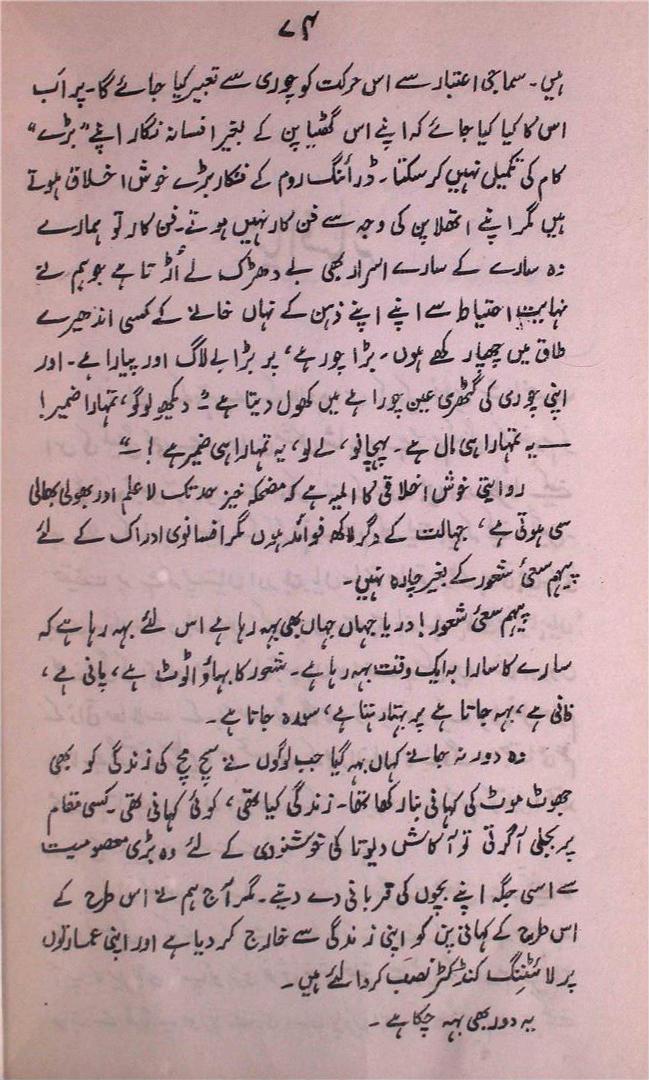 ۷۴
ہیں۔ سماجی اعتبار سے اس حرکت کو چوری سے تعبیر کیا جائے گا۔ پر اَب
اس کا کیا کیا جائے کہ اپنے اس گھٹیا پن کے بغیر افسانہ نگار اپنے "بڑے"
کام کی تکمیل نہیں کر سکتا۔ ڈرائنگ روم کے فنکار بڑے خوش اخلاق ہوتے
ہیں مگر اپنے اتھلا پن کی وجہ سے فن کار نہیں ہوتے۔ فن کار تو ہمارے
وہ سارے کے سارے اسرار بھی بے دھڑک لے اُڑتا ہے جو ہم نے
نہایت احتیاط سے اپنے اپنے ذہن کے نہاں خانے کے کسی اندھیرے
طاق میں چھپا رکھے ہوں۔ بڑا چور ہے، پر بڑا بے لاگ اور پیارا ہے۔ اور
اپنی چوری کی گٹھڑی عین چوراہے میں کھول دیتا ہے "دیکھو لوگو، تمہارا ضمیر!
— یہ تمہارا ہی مال ہے۔ پہچانو، لے لو، یہ تمہارا ہی ضمیر ہے! —"
روایتی خوش اخلاقی کا المیہ ہے کہ مضحکہ خیز حد تک لا علم اور بھولی بھالی
سی ہوتی ہے، جہالت کے دگر لاکھ فوائد ہوں مگر افسانوی ادراک کے لئے
پیہم سعیٔ شعور کے بغیر چارہ نہیں۔
پیہم سعیٔ شعور! دریا جہاں جہاں بھی بہہ رہا ہے اس لئے بہہ رہا ہے کہ
سارے کا سارا بہ ایک وقت بہہ رہا ہے۔ شعور کا بہاؤ اٹوٹ ہے، پانی ہے،
فانی ہے، بہہ جاتا ہے پر بہتا رہتا ہے، سدہ جاتا ہے۔
وہ دور نہ جانے کہاں بہہ گیا جب لوگوں نے سچ مچ کی زندگی کو بھی
جھوٹ موٹ کی کہانی بنا رکھا تھا۔ زندگی کیا تھی، کوئی کہانی تھی۔ کسی مقام
پر بجلی آ گرتی تو آکاش دیوتا کی خوشنودی کے لئے وہ بڑی معصومیت
سے اسی جگہ اپنے بچوں کی قربانی دے دیتے۔ مگر آج ہم نے اس طرح کے
اس طرح کے کہانی پن کو اپنی زندگی سے خارج کر دیا ہے اور اپنی عمارتوں
پر لائٹننگ کنڈکٹر نصب کروا لئے ہیں۔
یہ دور بھی بہہ چکا ہے۔